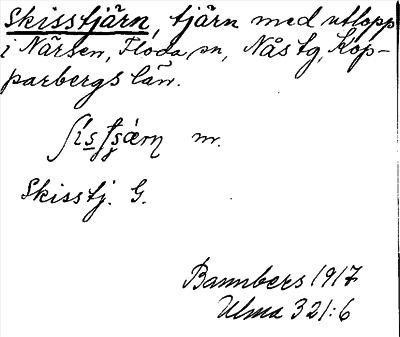 Skisstjärn, tjärn med utlopp
i Närsen, Floda sn, Nås tg, Kop-
parbergs län.
nr.
Skisstj. G.
Bannbers 1917
Ulma 321:6